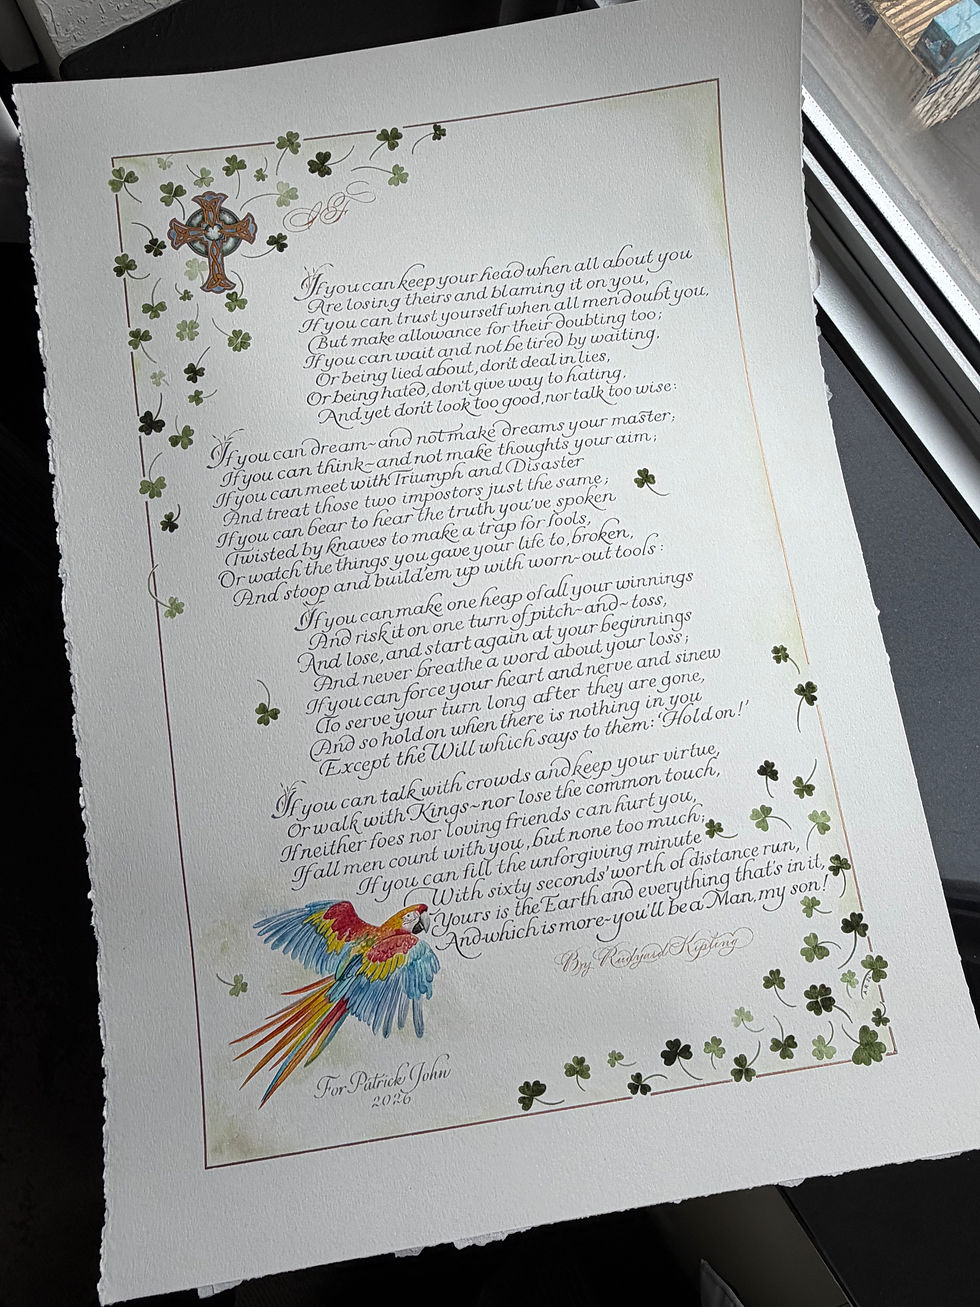 IF
If you can keep your head when all about you
Are losing theirs and blaming it on you,
If you can trust yourself when all men doubt you,
But make allowance for their doubting too;
If you can wait and not be tired by waiting,
Or being lied about, don't deal in lies,
Or being hated, don't give way to hating,
And yet don't look too good, nor talk too wise:
If you can dream~and not make dreams your master;
If you can think~and not make thoughts your aim;
If you can meet with Triumph and Disaster
And treat those two impostors just the same;
If you can bear to hear the truth you've spoken
Twisted by knaves to make a trap for fools,
Or watch the things you gave your life to, broken,
And stoop and build'em up with worn-out tools:
If you can make one heap of all your winnings
And risk it on one turn of pitch~and~toss,
And lose, and start again at your beginnings
And never breathe a word about your loss;
If you can force your heart and nerve and sinew
To serve your turn long after they are gone,
And so hold on when there is nothing in you
Except the Will which says to them: 'Hold on!'
If you can talk with crowds and keep your virtue,
Or walk with Kings~nor lose the common touch,
If neither foes nor loving friends can hurt you,
If all men count with you, but none too much;
If you can fill the unforgiving minute
With sixty seconds' worth of distance run,
Yours is the Earth and everything that's in it,
And~which is more~you'll be a Man, my son!
By Rudyard Kipling
For Patrick John
2026